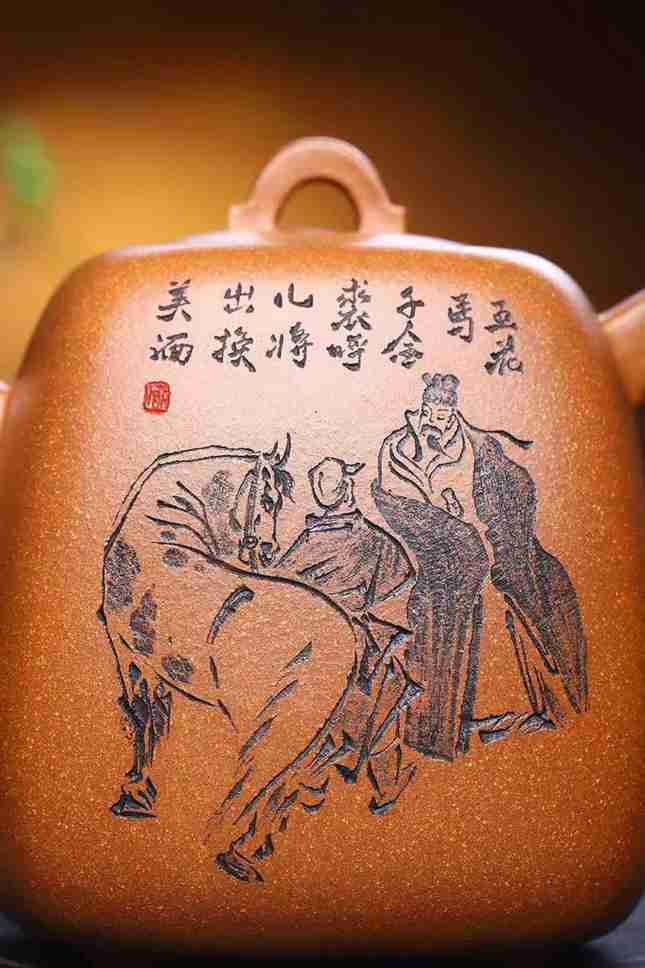 五花
马
千金
裘呼
儿将
出换
美酒